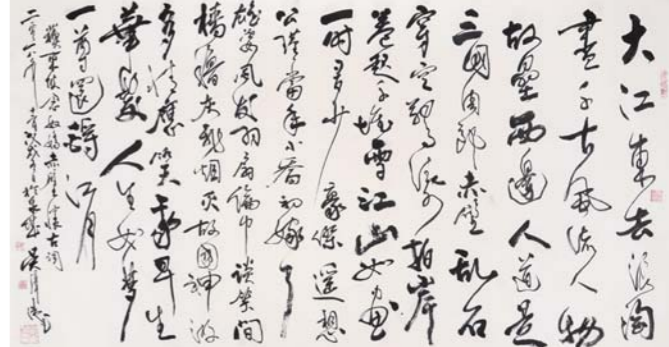 大江東去浪淘
盡千古風流人物
故壘西邊人道是
三國周郎赤壁乱石
穿空驚濤拍岸
卷起千堆雪江山如画
一时多少豪傑遥想
公瑾當年小喬初嫁了
雄姿風发羽扇綸巾談笑間
檣櫓灰飛烟灭故國神游
多情應笑我早生
華髮人生如夢
一尊還酹江月
念奴嬌赤壁懷古詞